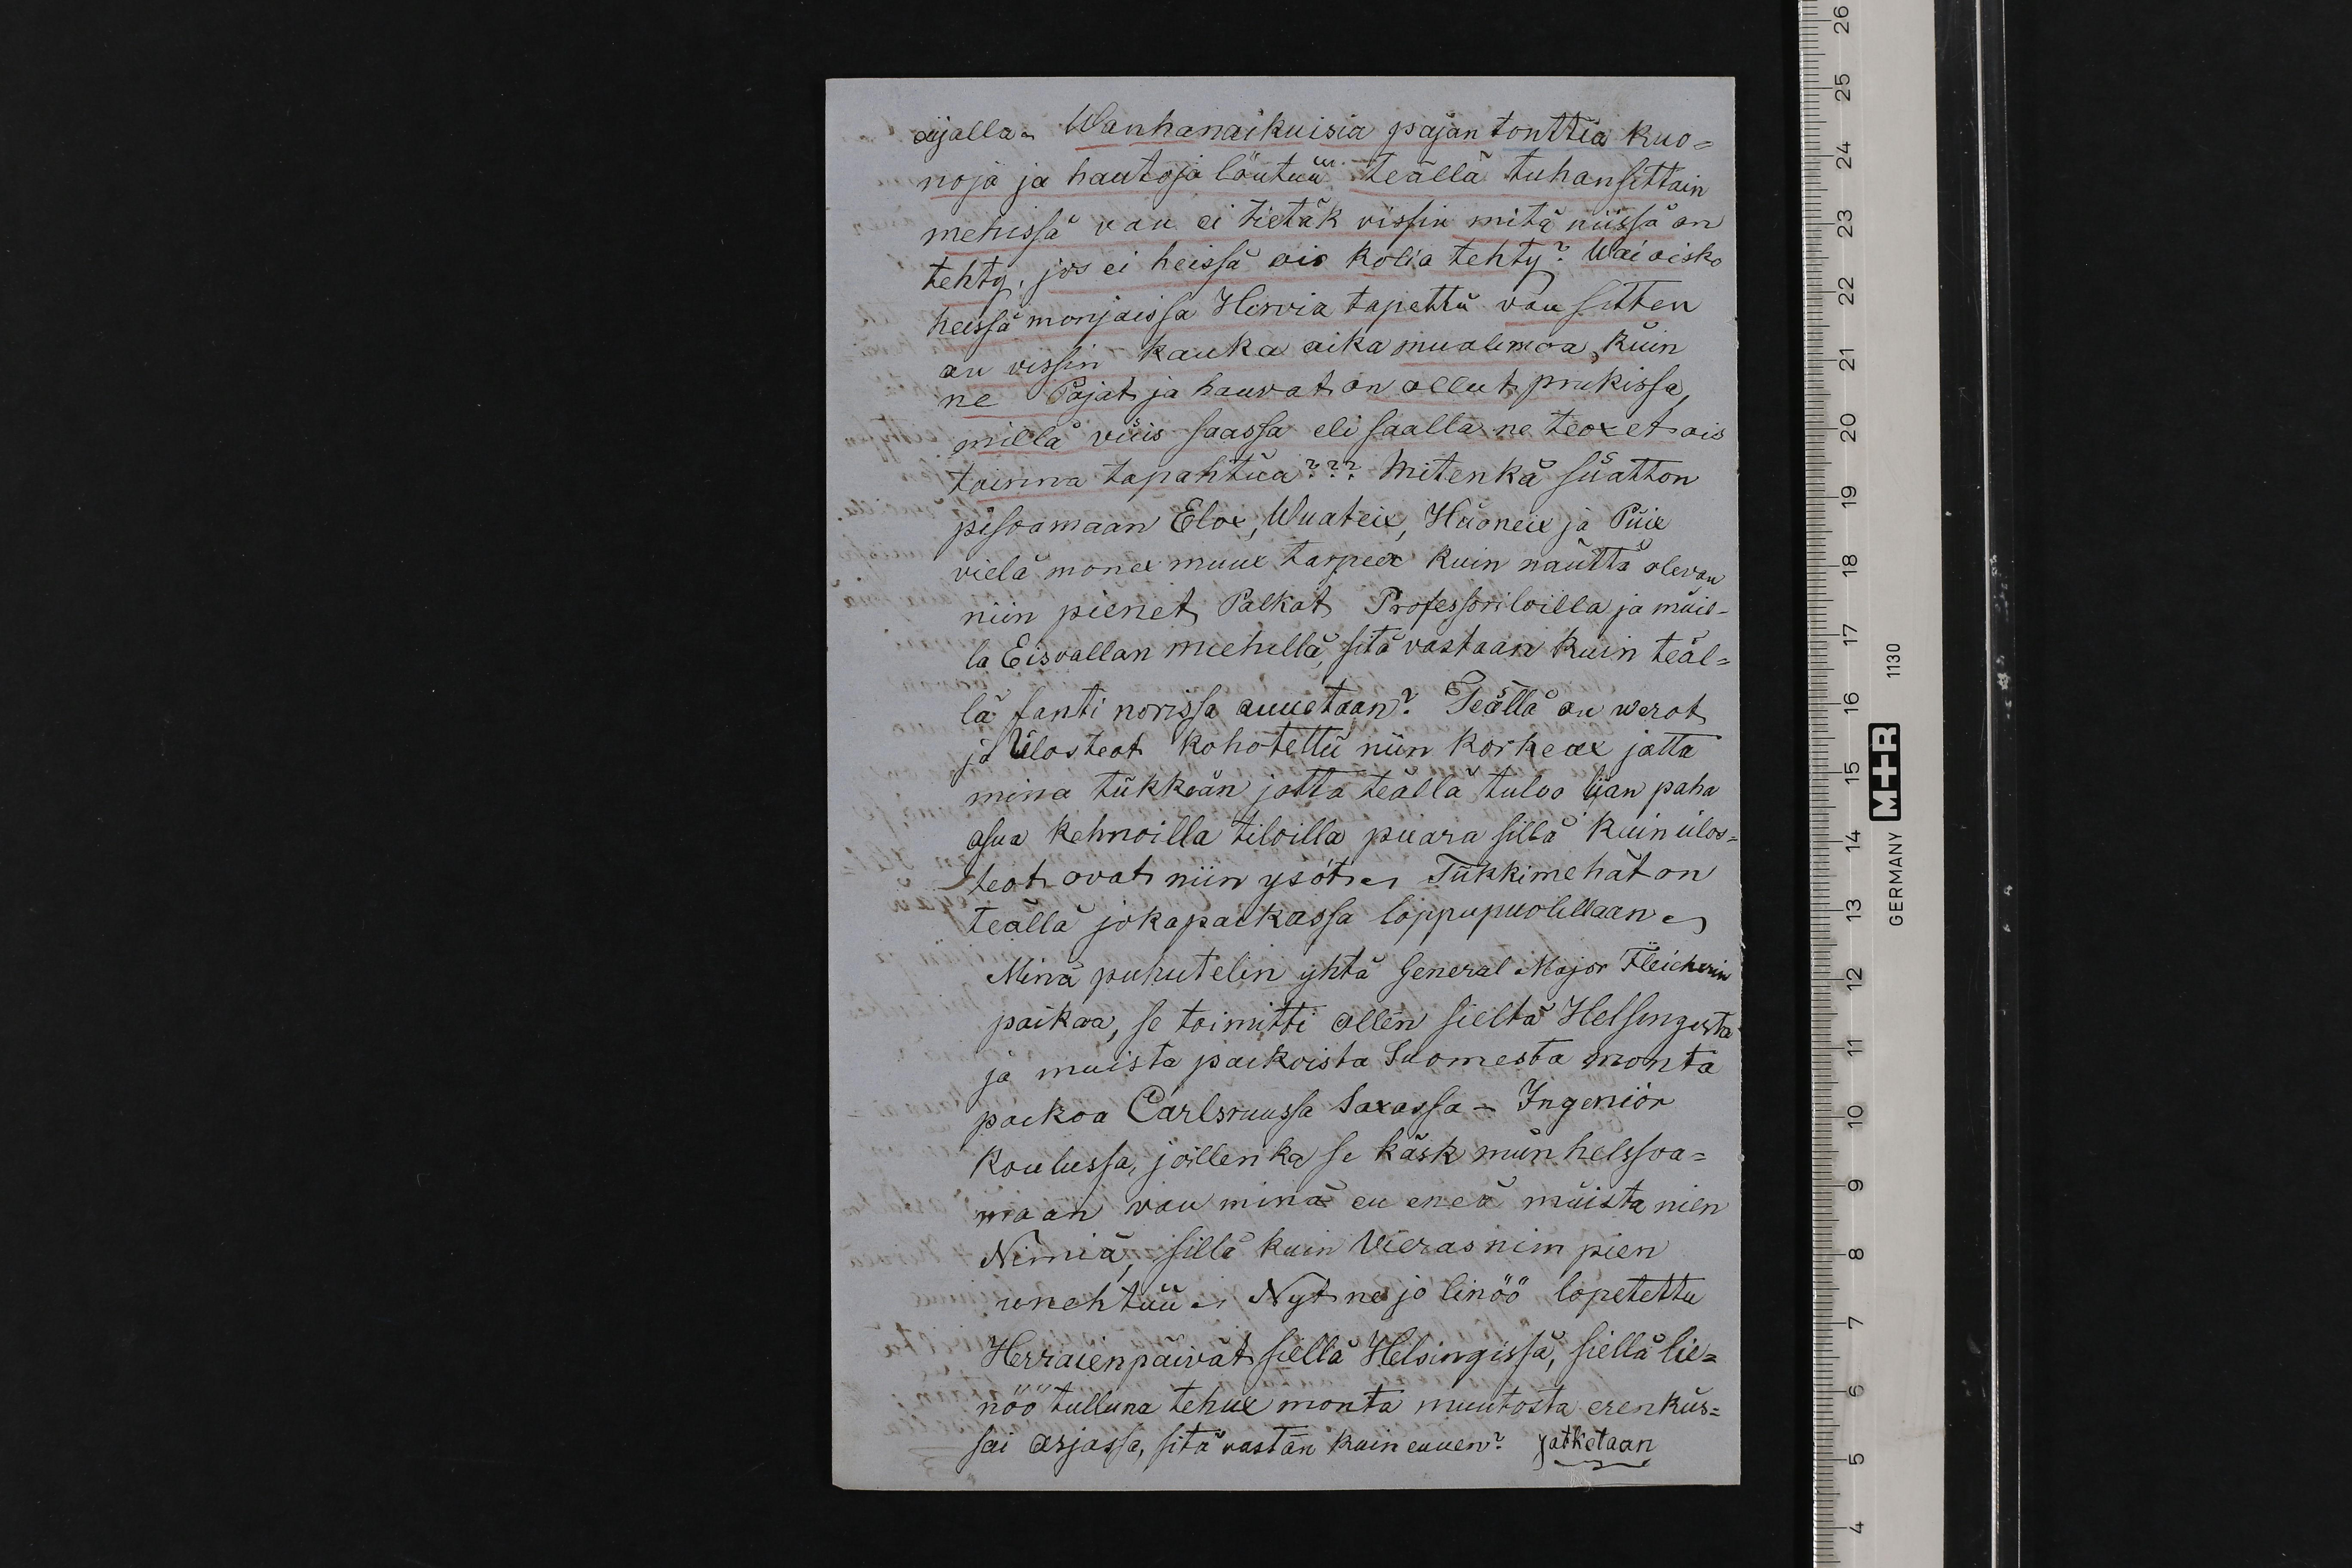 aijalla. Wanhanaikuisia pajan tonttia kuo=
noja ja hautoja löütüü teällä tuhansittain
mehissä van ei tietäk vissin mitä niissä on
tehty, jos ei heissä ois kolia tehty? Wai oisko
heissä monjaissa Hirvia tapettu van sitten
on vissin kauka aika mualimoa, kuin
ne Pajat ja hauvat on ollut prukissa,
millä viis saassa eli saalla ne teoxet ois
toinna tapahtua??? Mitenkä süatton
pisoamaan Elox, Wuateix, Huoneix ja Puix
vielä monex muux tarpeex kuin näüttä olevan
niin pienet Palkat Professoriloilla ja muil=
la Eisvallan miehillä, sitä vastaan kuin teäl=
lä santi norissa auuetaan? Teällä on werot
ja ülosteot kohotettu niin korkeax jotta
mina tükkeän jotta teällä tuloo lian paha
asua kehnoilla tiloilla puara sillä kuin ülos=
teot ovat niin ysöt. Tükkimehät on
teällä jokapaikassa loppupuolillaan.
Minä puhutelin yhtä General Major Fleicherin
poikoa, se toimitti ollen sieltä Helsingista
ja muista paikoista Suomesta monta
poikoa Carlsruussa Saxassa - Ingeniör
Koulussa, joillenka se käsk miun helssoa=
maan van minä en eneä muista nien
Nimiä, sillä kuin Vieras nim pien
unehtuu. Nyt ne jo linöö lopetettu
Herraienpäivät siellä Helsingissä, siellä lie=
nöö tulluna tehux monta muutosta erenküs=
sai arjassa, sitä vastan kuin euuen? jatketaan
26
25
24
23
22
21
20
19
18
17
16
15
14
13
12
11
10
9
8
7
6
5
4
GERMANY M+R 1130